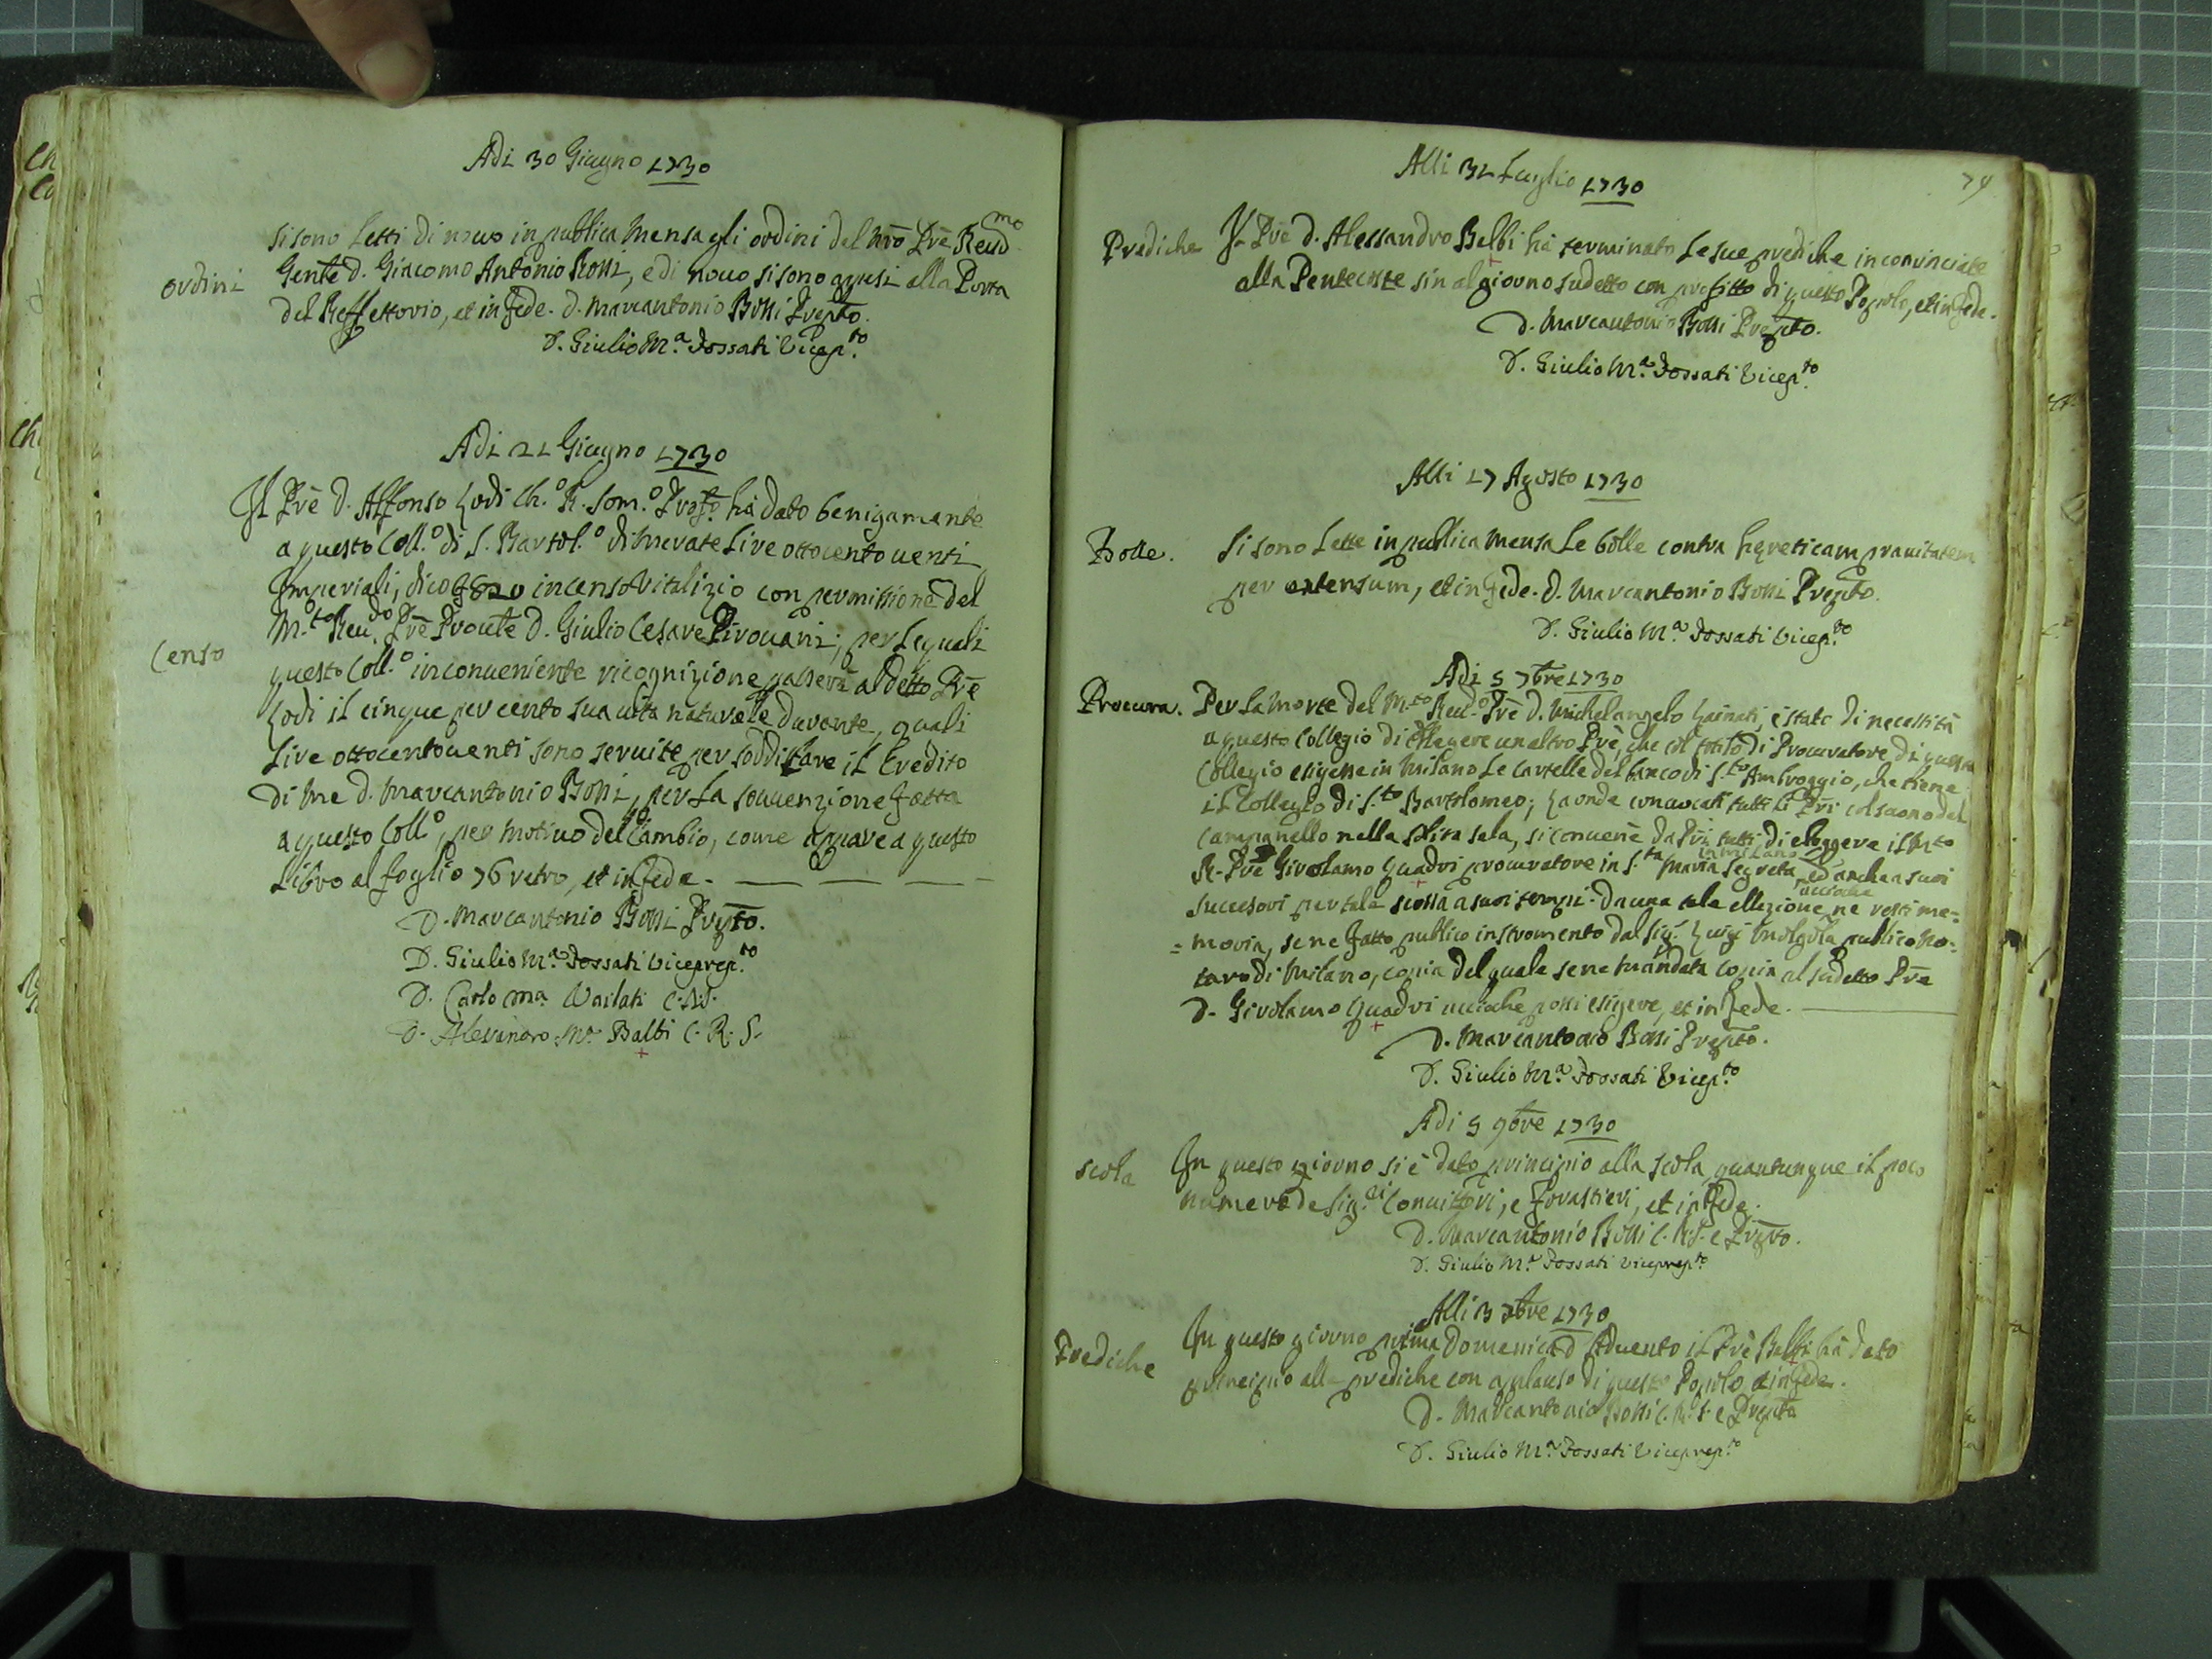 Adi 30 Giugno 1730
Si sono Letti di nouo in publica mensa gli ordini del nrō Prē Reud.mo
ordini
Gente d. Giacomo Antonio Rossi, e di nouo si sono apesi alla Porta
del Reffettorio, et in fede. d. Marcantonio Bossi Prepto.
D. Giulio M.a Fossati Vicep.to
Adi 21 Giugno 1730
Il Prē D. Alfonso Lodi Ch.o R. Som.o Profo. ha dato benigamente
a questo Coll.o di S. Bartol.o di Merate Lire ottocento uenti
Imperiali, dico £820 in censo Vitalizio con permissione del
M.to Reu.do Prē Prouле D. Giulio Cesare Pirouani; per le quali
Censo
questo Coll.o in conueniente ricognizione passerà al detto Prē
Lodi il cinque per cento sua uita naturale durante, quali
Lire ottocentouenti sono seruite per soddisfare il Credito
di me D. Marcantonio Bossi, per la souuenzione fatta
a questo Coll.o, per motiuo del Cambio, come appare a questo
Libro al foglio 76 retro, et in fede.
D. Marcantonio Bossi Prepto.
D. Giulio M.a Fossati Viceprep.to
D. Carlo Ma. Vailati C.R.S.
D. Alesandro Ma. Balbi C. R. S.
Alli 31 Luglio 1730
79
Prediche
Il Prē D. Alessandro Balbi hà terminato le sue prediche incominciate
alla Pentecoste sin al giorno sudetto con profitto di questo Popolo, et in fede.
D. Marcantonio Bossi Prepto.
D. Giulio M.a Fossati Vicep.to
Alli 17 Agosto 1730
Bolle.
Si sono Lette in publica mensa Le bolle contra hereticam prauitatem
per extensum, et in fede. D. Marcantonio Bossi Prepto.
D. Giulio M.a Fossati Vicep.to
Adi 5 7bre 1730
Procura.
Per la morte del M.to Reu.do Prē D. Michelangelo è stato di necessità
a questo Collegio di ellegere un altro Prē, che col titolo di Procuratore di questo
Collegio esigesse in Milano Le Cartelle del banco di S.to Ambroggio, che tiene
il Collegio di S.to Bartolomeo; Laonde conuocati tutti li Pri col suono del
Campanello nella solita sala, si conuenē da Pri tutti di eleggere il M.to
R. Prē Girolamo Quadri procuratore in S.ta Maria Segreta in Milano ed anche a suoi
Successori per tale scossa a suoi tempi. Da una tale ellezione acciocchè ne resti me=
=moria, se ne fatto publico instromento dal Sig.r Luigi publico No=
taro di Milano, copia del quale se ne mandata copia al sudetto Prē
D. Girolamo Quadri acciochè possi esigere, et in fede.
D. Marcantonio Bossi Prepto.
D. Giulio M.a Fossati Vicep.to
Adi 5 9bre 1730
Scola
In questo giorno si è dato principio alla scola, quantunque il poco
numero de Sig.ri Conuittori, e forastieri, et in fede.
D. Marcantonio Bossi C.R.S. e Prepto.
D. Giulio M.a Fossati Viceprep.to
Alli 3 Xbre 1730
Prediche
In questo giorno prima Domenica d'Aduento il Prē Balbi hà dato
principio alle prediche con aplauso di questo Popolo, et in fede.
D. Marcantonio Bossi C.R.S. e Prepto
D. Giulio M.a Fossati Viceprep.to